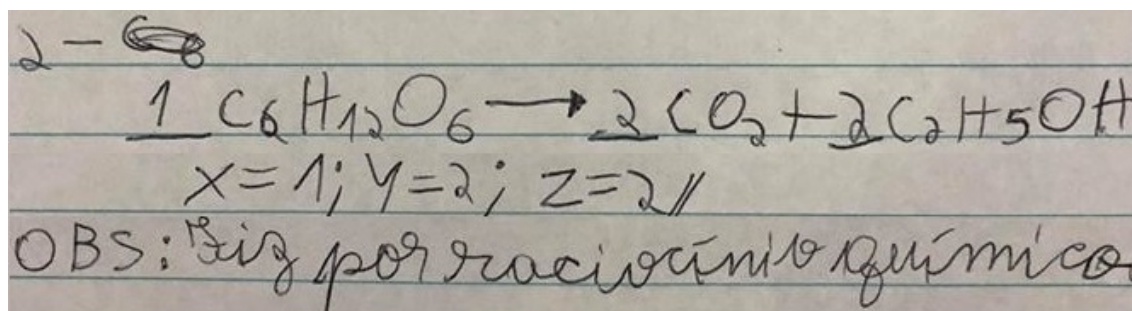 2-
1 C6H12O6 → 2 CO2 + 2 C2H5OH
x=1; y=2; z=2//
OBS: Fiz por raciocínio químico